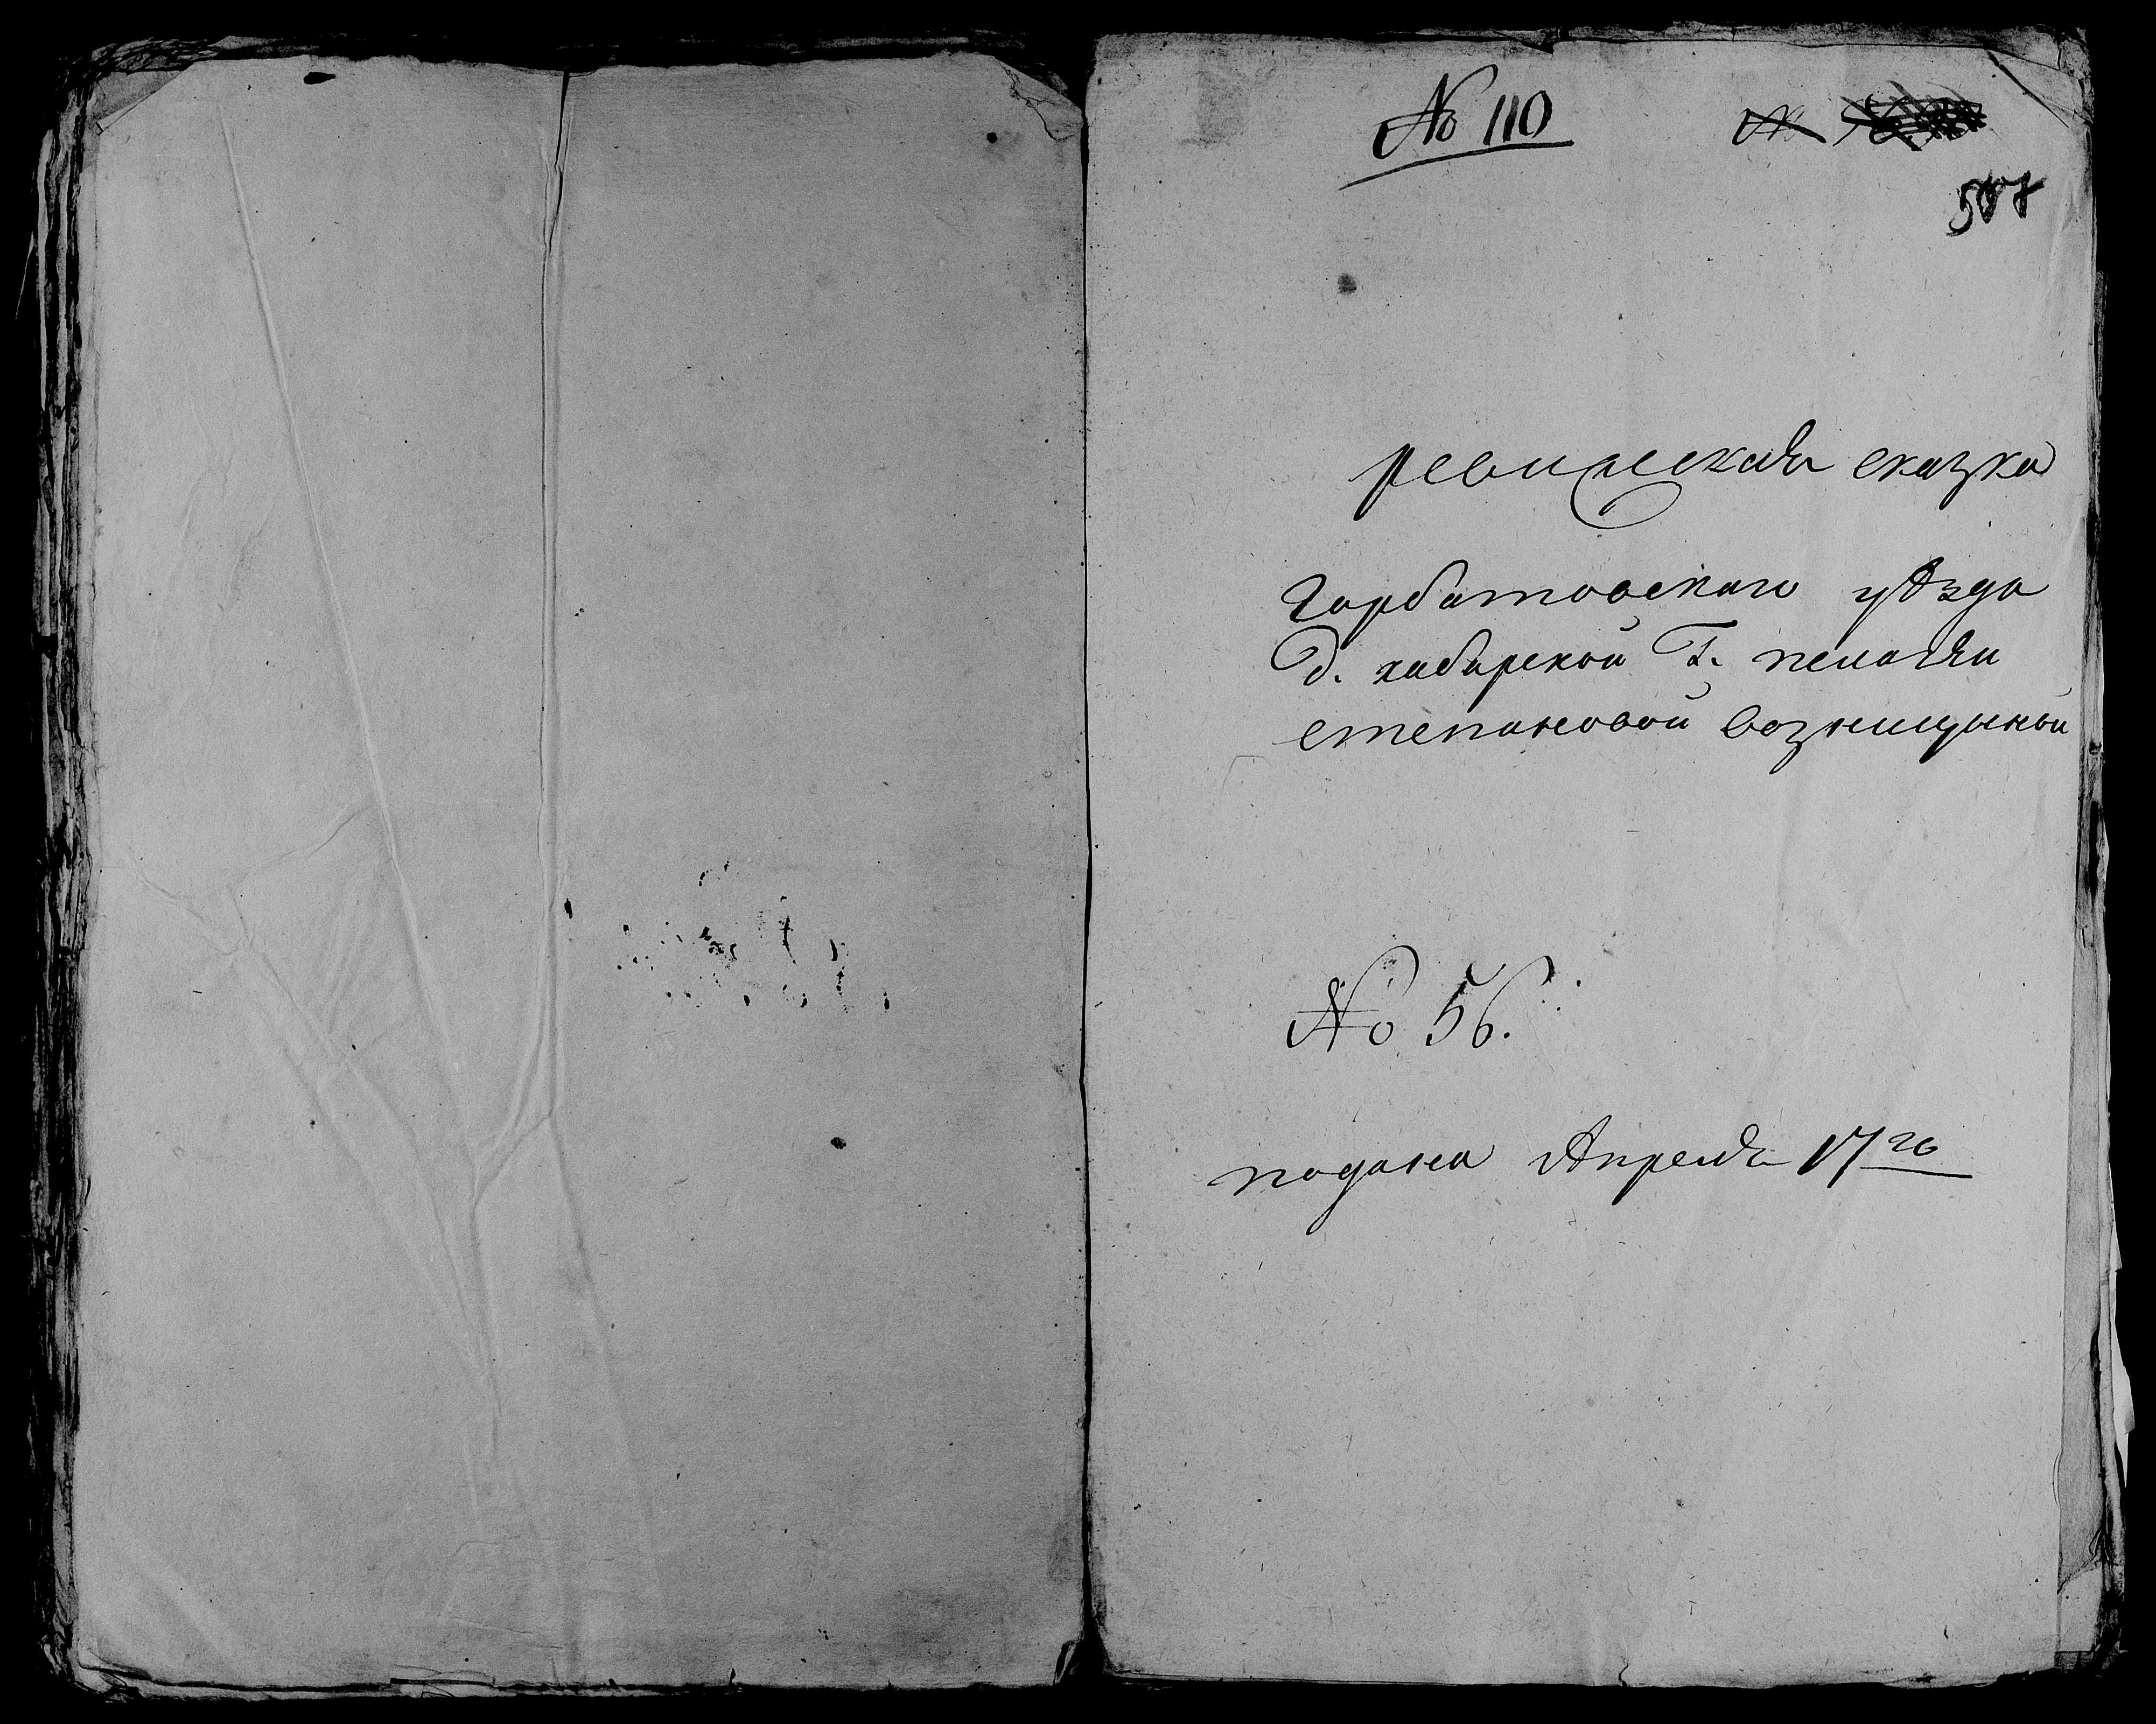 № 110
ревижская сказка
Горбатовскаго уѣзда
д. хабарской Г. пелагѣи
степановой вознищыной
№ 56.
подана Апреля 17го